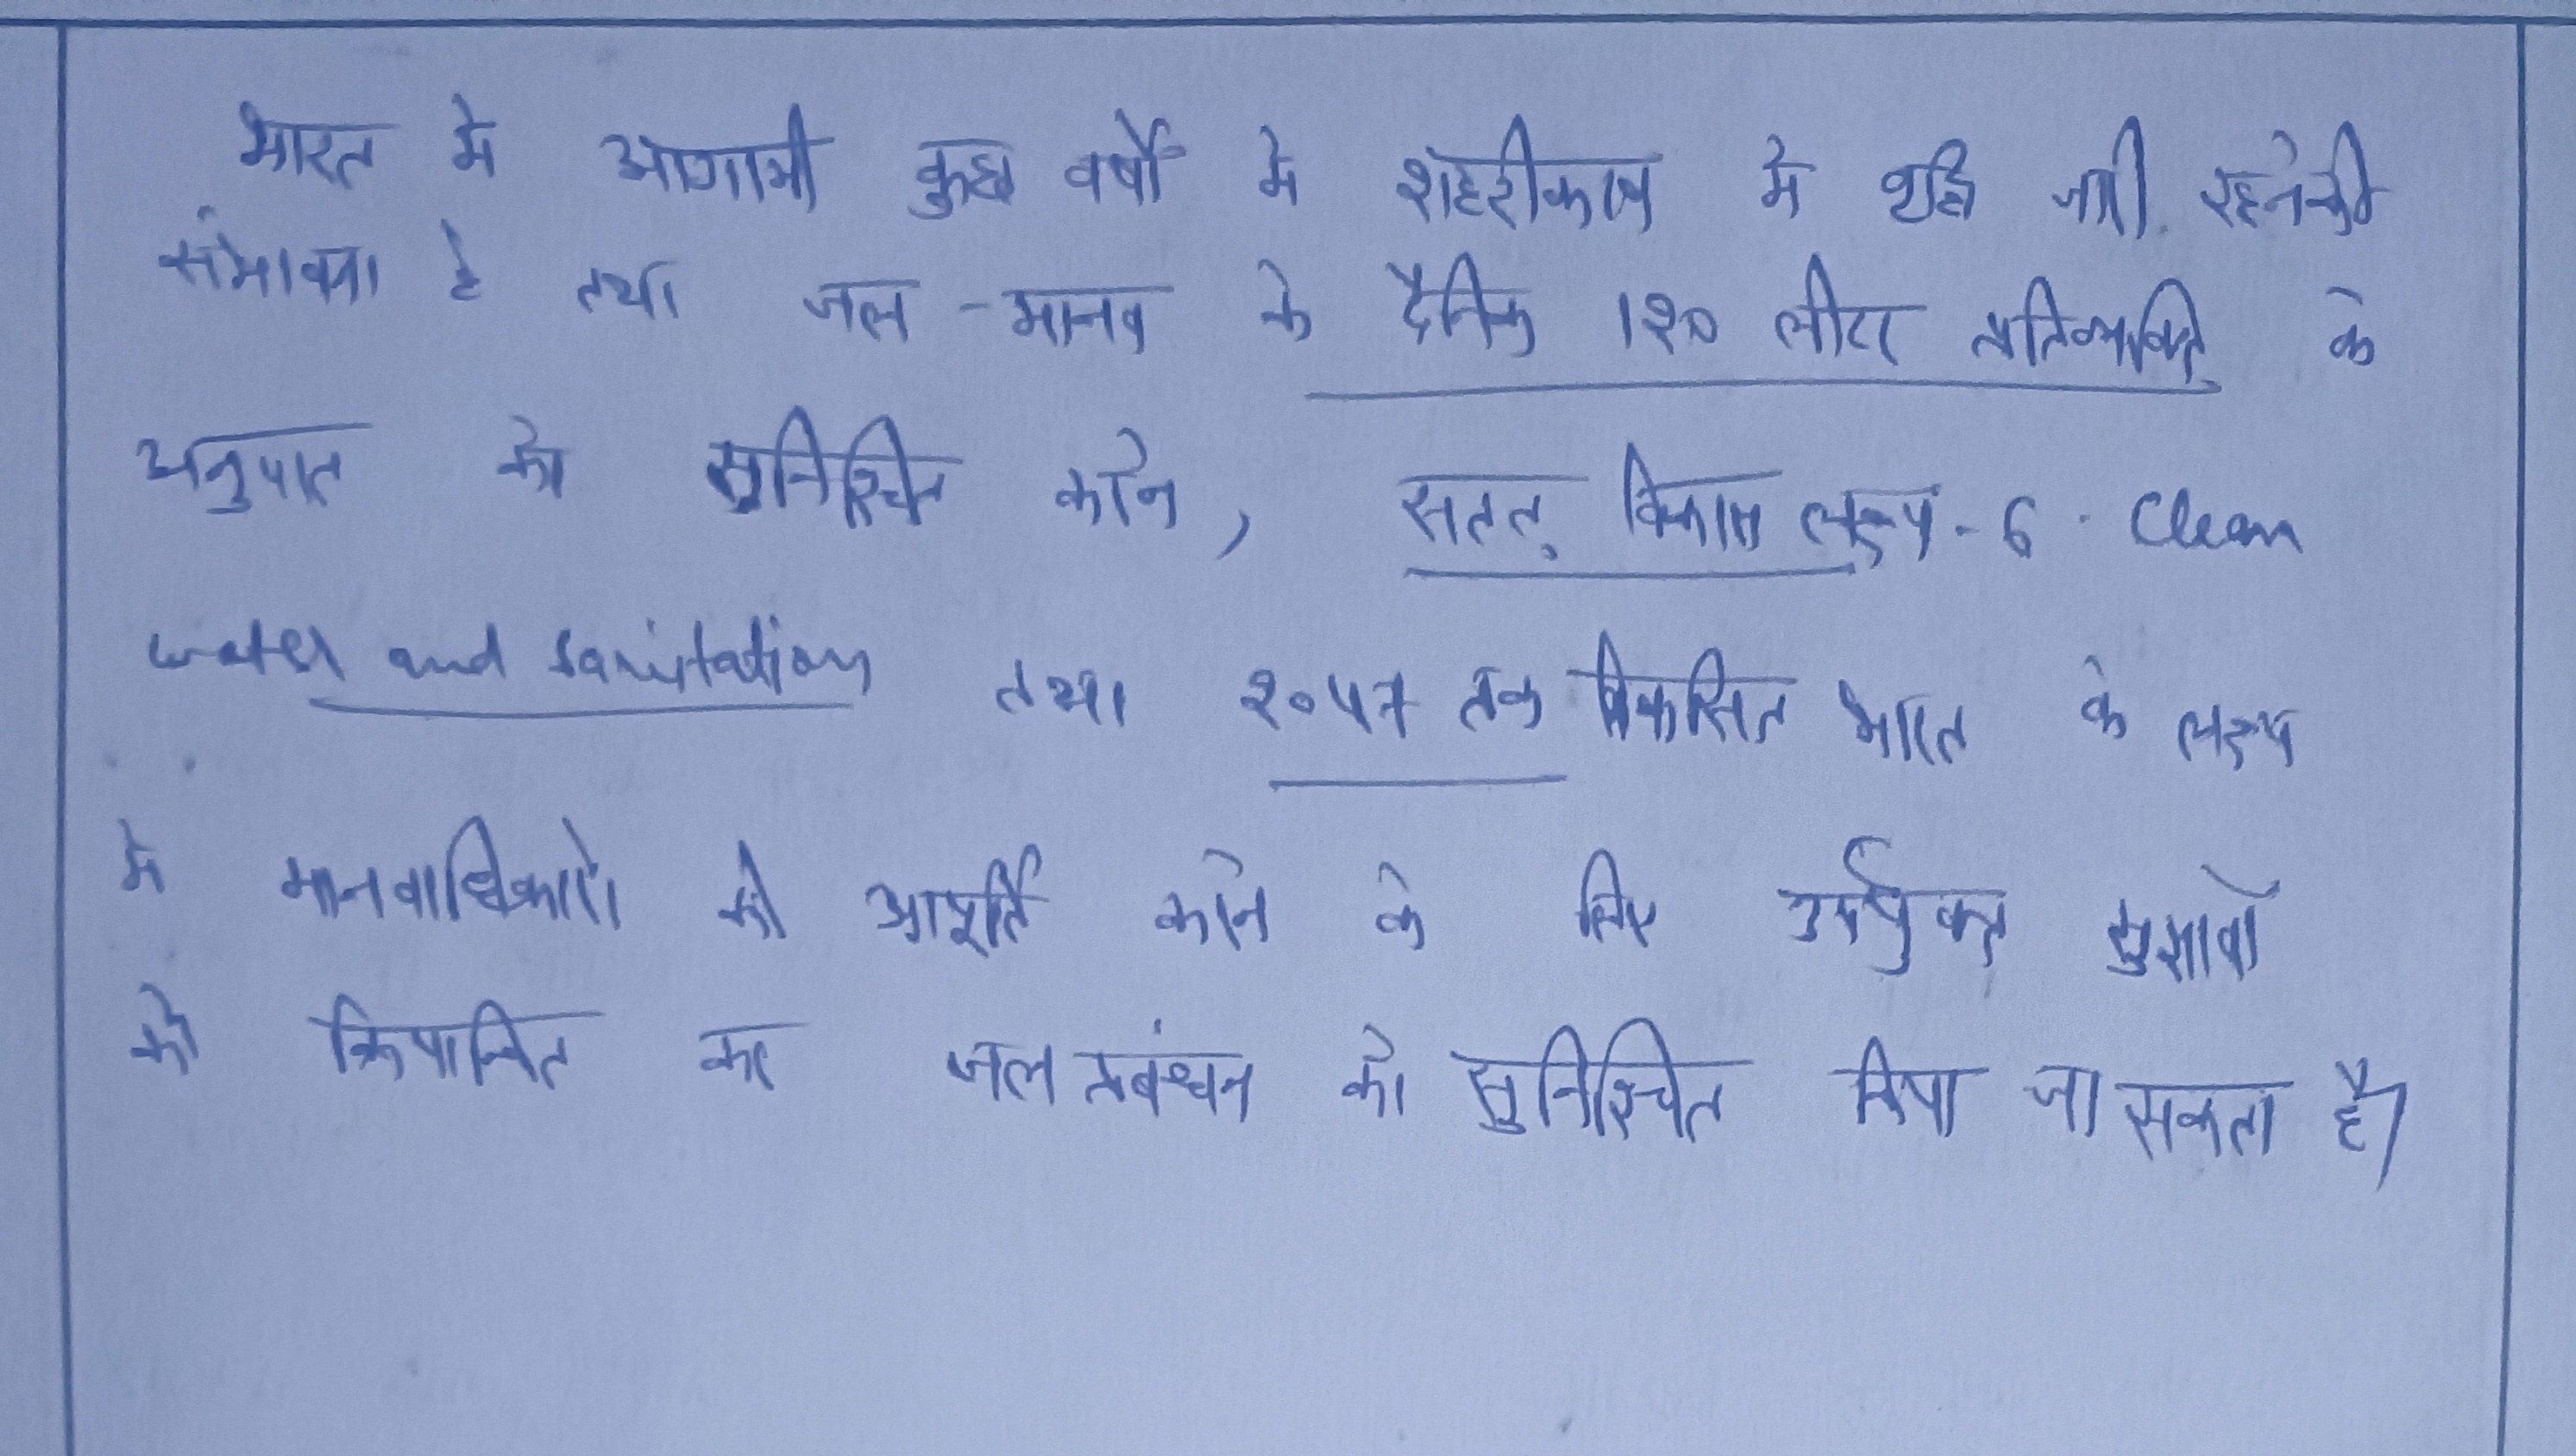 भारत मे आगामी कुछ वर्षों मे शहरीकरण मे वृद्धि जारी रहने की
संभावना है तथा जल - मानव के दैनिक 120 लीटर प्रतिव्यक्ति के
अनुपात को सुनिश्चित करने, सतत् विकास लक्ष्य - 6 - Clean
water and sanitation तथा २०४७ तक विकसित भारत के लक्ष्य
मे मानवाधिकारों की आपूर्ति करने के लिए उपर्युक्त सुझावों
को क्रियान्वित कर जल प्रबंधन को सुनिश्चित किया जा सकता है।